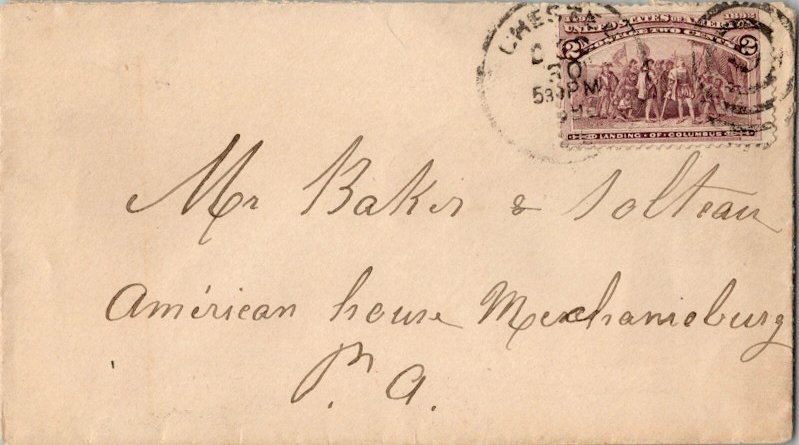 CHES
D
30
530PM
1492 1892
UNITED STATES OF AMERICA
2 POSTAGE TWO CENTS 2
LANDING · OF · COLUMBUS
Mr Baker & Solteau
Américan house Mechanicburg
P. A.